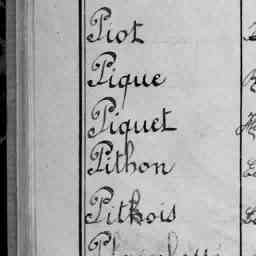 Piot
Pique
Piquet
Pithon
Pithois